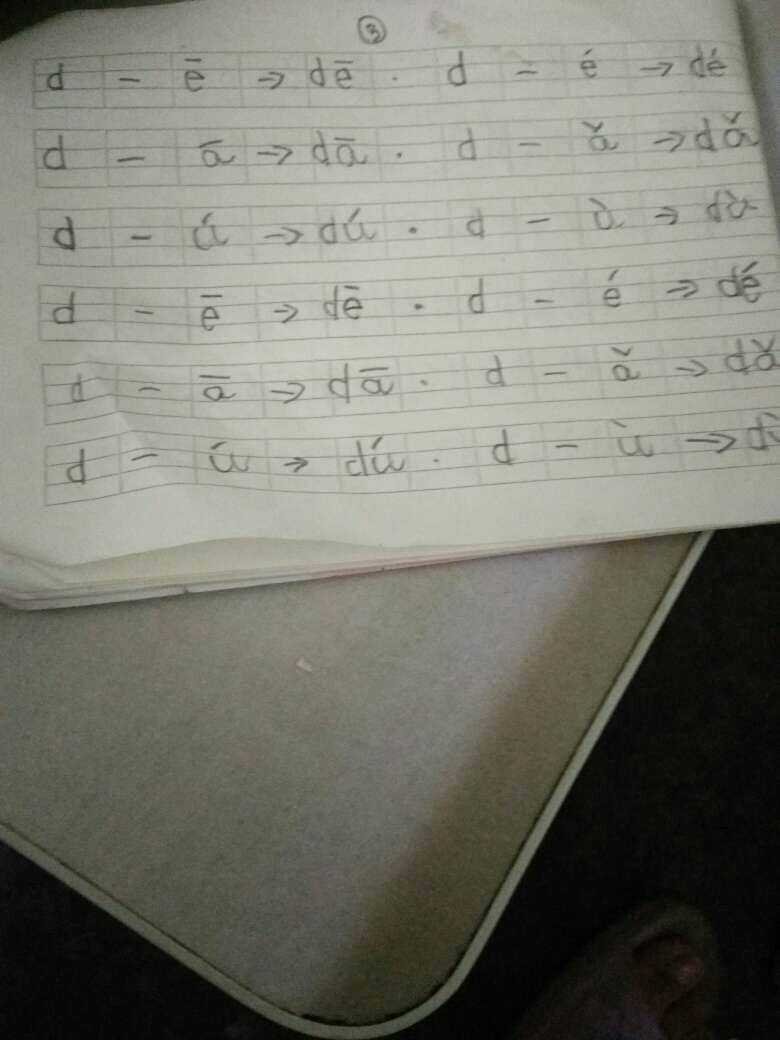 ③
d - ē → dē . d - é → dé
d - ā → dā . d - ǎ → dǎ
d - ú → dú . d - ù → dù
d - ē → dē . d - é → dé
d - ā → dā . d - ǎ → dǎ
d - ú → dú . d - ù →